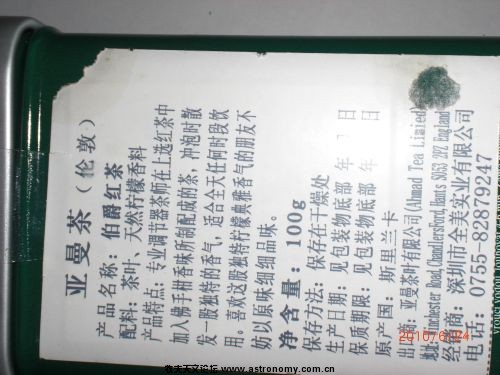 亚曼茶（伦敦）
产品名称：伯爵红茶
配料：茶叶、天然柠檬香料
产品特点：专业调节器茶师在上选红茶中
加入佛手柑香味所制配成的茶，冲泡时散
发一股独特的香气，适合全天任何时段饮
用。喜欢这股独特柠檬典雅香气的朋友不
妨以原味细细品味。
净含量：100g
保存方法：保存在干燥处
生产日期：见包装物底部 年 月 日
保质期限：见包装物底部 年 日
原产国：斯里兰卡
出品商：亚曼茶叶有限公司(Ahmad Tea Limited)
地址: Road,Chandlersford,Hants SO53 2PZ England
经销商：深圳市全美实业有限公司
电话：0755-82879247
2010/6/24
牧夫天文论坛 www.astronomy.com.cn